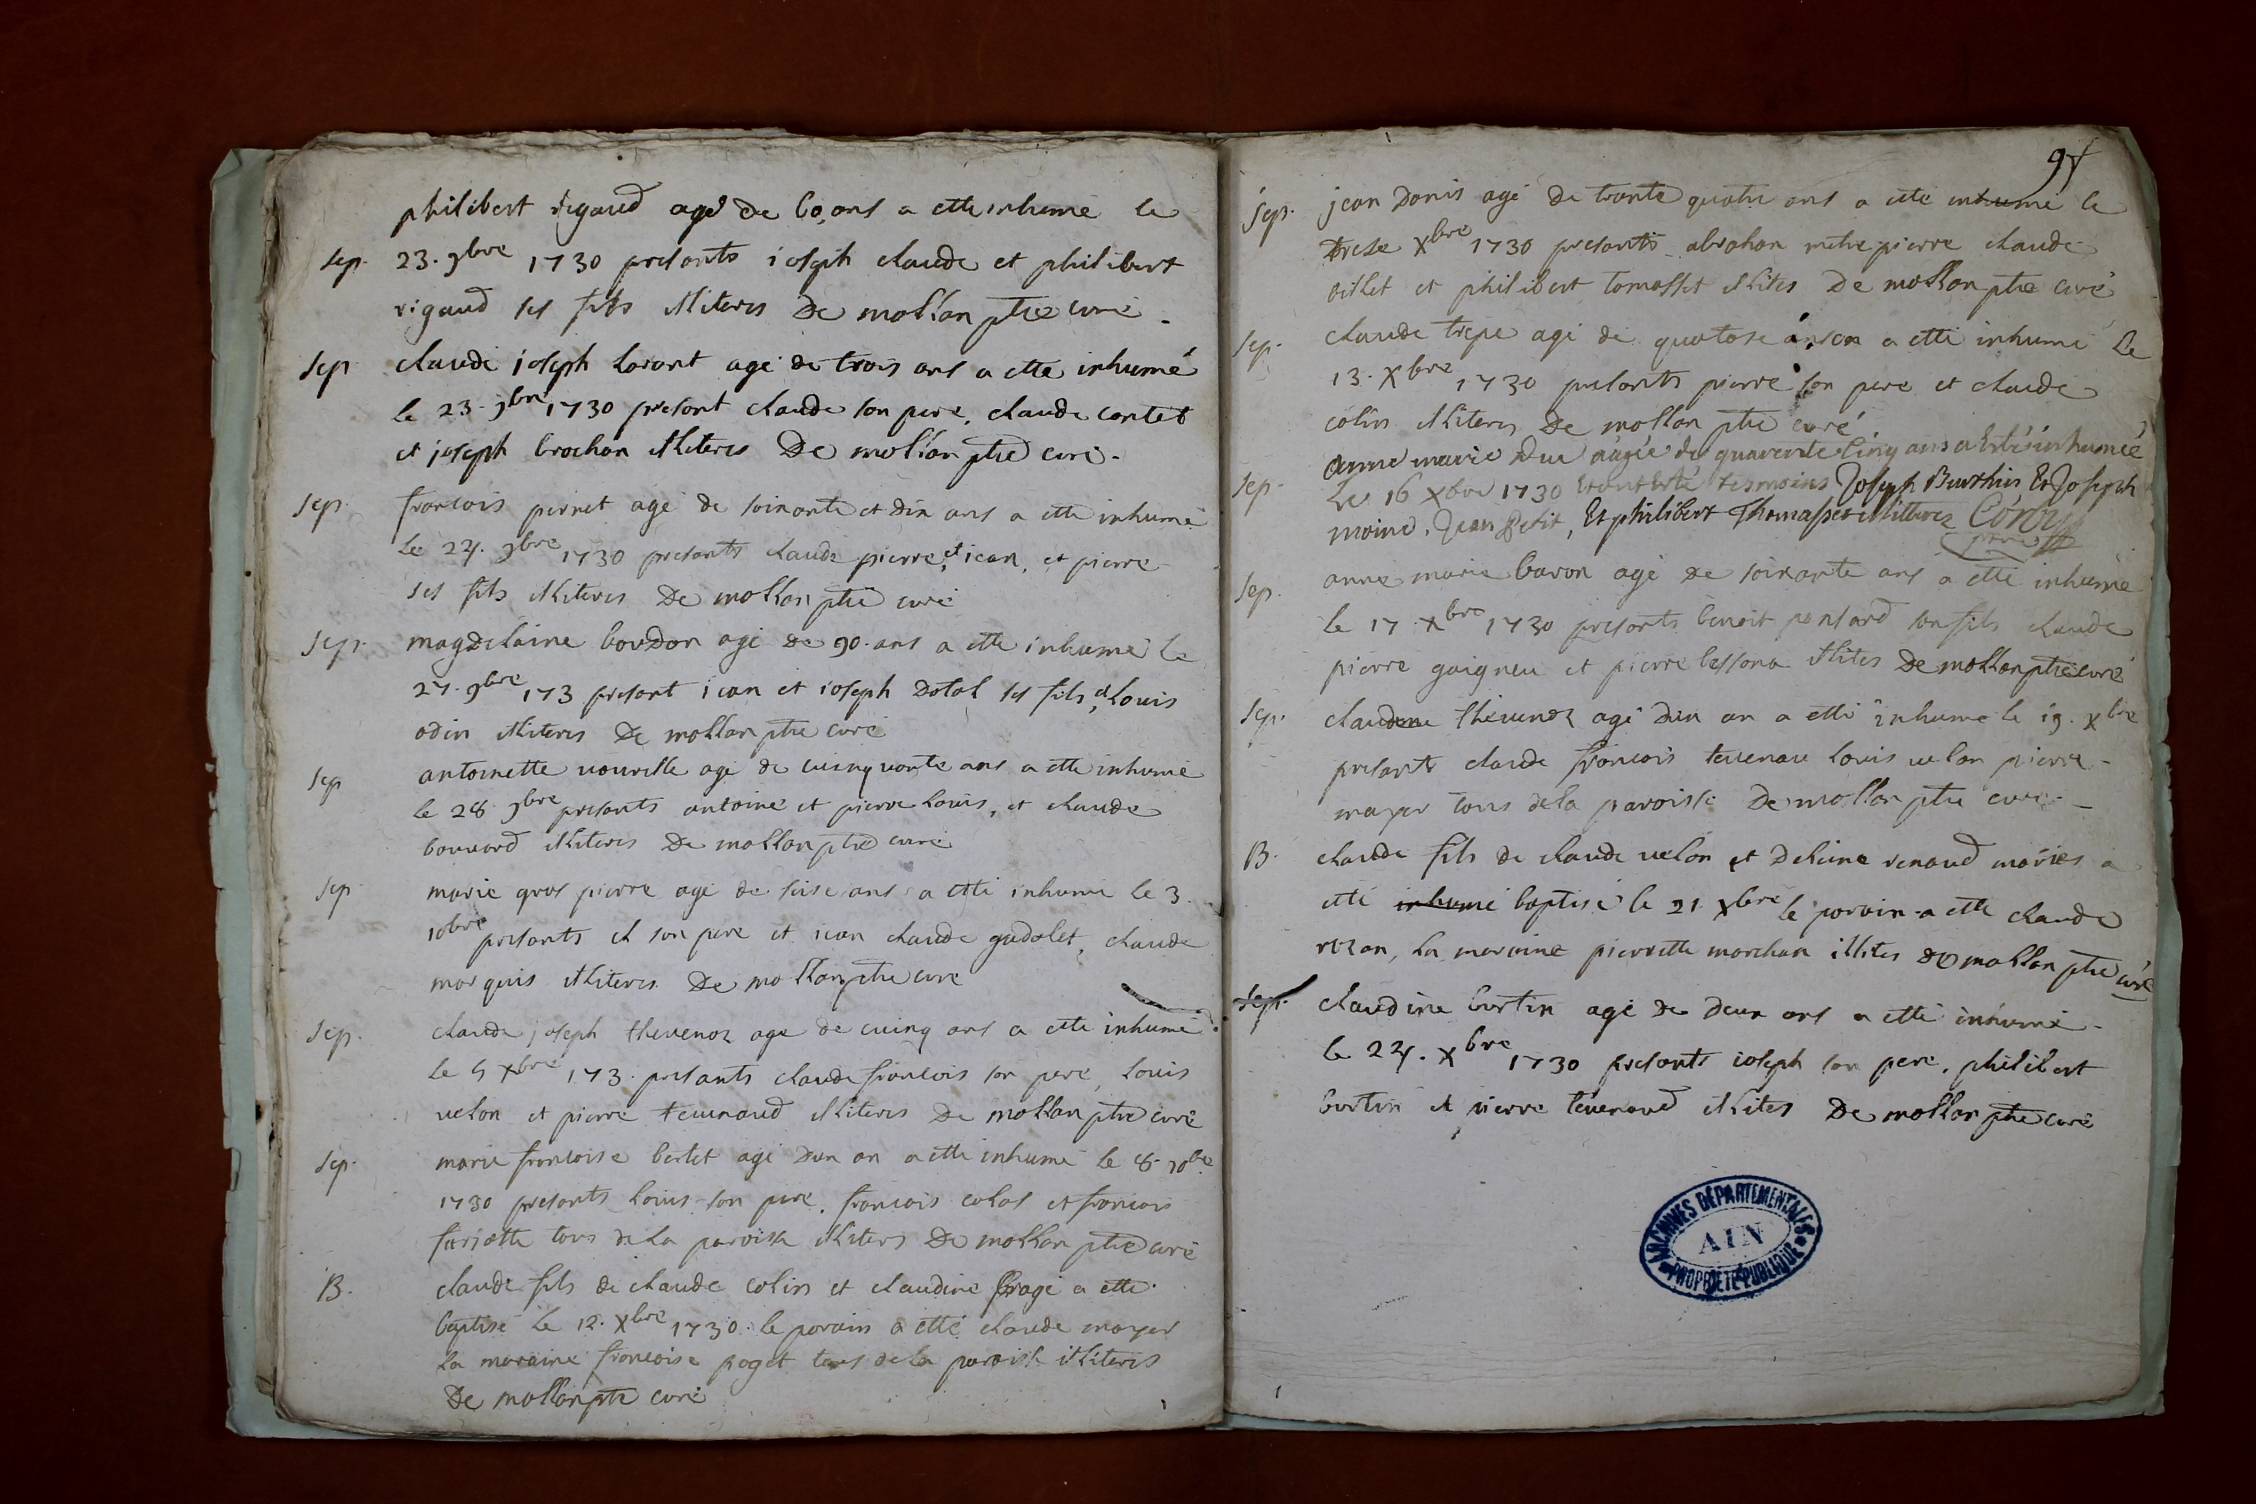 philibert rigaud agé de 60 ans a etté inhumé le
sep. 23. 9bre 1730 presants ioseph claude et philibert
rigaud ses fils illiteres De mollan ptre curé
sep claude ioseph lorant agé de trois ans a etté inhumé
le 23. 9bre 1730 presant claude son pere, claude contet
et joseph brochan illiteres De mollan ptre curé.
sep. francois pernet agé de soixante et dix ans a etté inhumé
le 24. 9bre 1730 presants claude pierre, et ican, et pierre
ses fils illiteres De mollan ptre curé
sep. magdelaine boudon agé de 90. ans a etté inhumé le
27. 9bre 173 presant ican et ioseph dotal ses fils, et louis
odin illiteres De mollan ptre curé
sep antoinette nouvelle agé de cuinquante ans a etté inhumé
le 28 9bre presants antoine et pierre louis, et claude
bouvard illiteres De mollan ptre curé
sep marie gros pierre agé de seise ans a etté inhumé le 3.
10bre presants et son pere et ican claude gudolet, claude
marquis illiteres De mollan ptre curé
sep. claude joseph thevenoz agé de cuinq ans a etté inhumé
le 5 xbre 173. presants claude francois son pere, louis
velon et pierre tevenaud illiteres De mollan ptre curé
sep. marie francoise bertet agé dun an a etté inhumé le 8. 10bre
1730 presants louis son pere, francois colas et francois
farjotte tous de la paroisse illiteres De mollan ptre curé
B. claude fils de claude colin et claudine frage a etté
baptisé le 12. xbre 1730. le parain a etté claude mayer
la maraine francoise poget tous de la paroisse illiteris
De mollan ptre curé
97
sep. jean donis agé de trante quatre ans a eté inhumé le
treze xbre 1730 presants abrahan metrepierre claude
oillet et philibert tomasset illites De mollan ptre curé
sep. claude trepe agé de quatose ans a etté inhumé le
13. xbre 1730 presants pierre son pere et claude
colin illiteres De mollan ptre curé
anne marie Duc aagée de quarente Cinq ans a Esté inhumée
sep. Le 16 xbre 1730 Et ont Esté tesmoins Joseph Burthin Et Joseph
moine, Jean Petit, Et philibert Thomasset illitteres
sep. anne marie baron agé de soixante ans a etté inhumé
le 17 xbre 1730 presants benoit ponsard son fils claude
pierre gaigneu et pierre bessona illites De mollan ptre curé
sep. claudine thevenoz agé dun an a etté inhumé le 19. xbre
presants claude francois tevenau louis velon pierre
mayer tous de la paroisse De mollan ptre curé
B. claude fils de claude velon et Deleine renaud mariés a
etté inhumé baptisé le 21. xbre le parain a etté claude
rozan, la maraine pierrette marchan illites De mollan ptre curé
sep. claudine burtin agé de deux ans a etté inhumé
le 24. xbre 1730 presants ioseph son pere, philibert
burtin et pierre tevenaud illites De mollan ptre curé
ARCHIVES DÉPARTEMENTALES
AIN
PROPRIÉTÉ PUBLIQUE